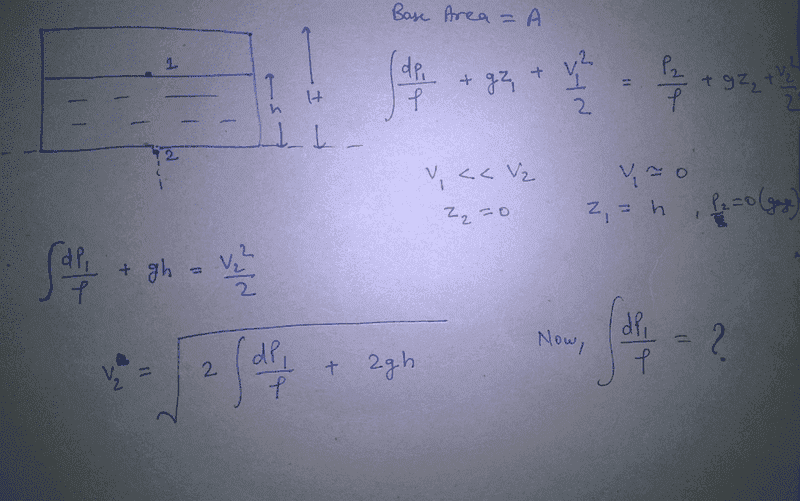 Base Area = A
1
h
H
2
∫ dP₁/ρ + gz₁ + V₁²/2 = P₂/ρ + gz₂ + V₂²/2
V₁ << V₂ V₁ ≃ 0
z₂ = 0 z₁ = h , P₂ = 0 (gage)
∫ dP₁/ρ + gh = V₂²/2
V₂ = √(2 ∫ dP₁/ρ + 2gh)
Now, ∫ dP₁/ρ = ?